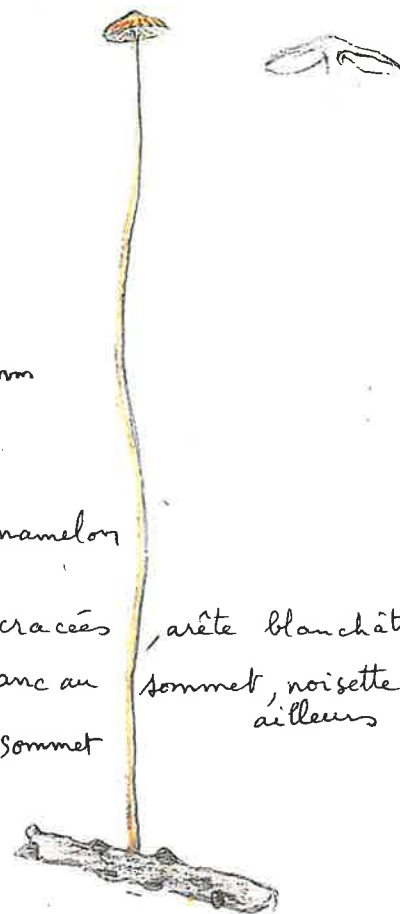 mm
mamelon
cracées, arête blanchât
anc au sommet, noisette
ailleurs
sommet